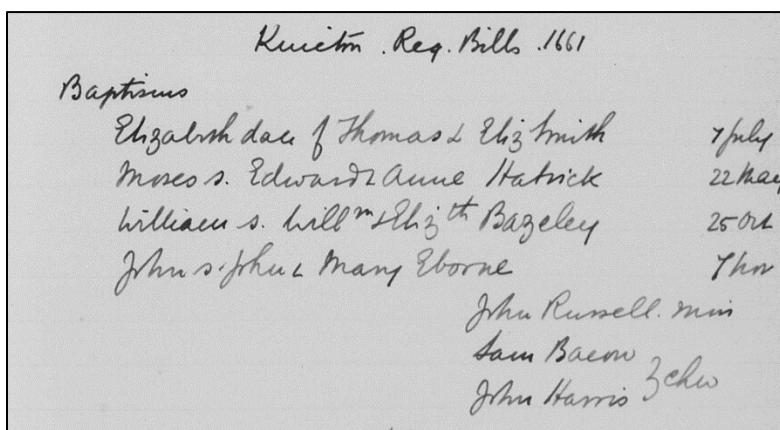 Kuicton . Reg. Bills . 1661
Baptisms
Elizabeth dau of Thomas & Eliz Smith 7 July
Moses s. Edward & Anne Hatrick 22 May
William s. Willm & Elizth Bazeley 25 Oct
John s. John & Mary Eborne 7 Nov
John Russell. Min
Sam Bacon
John Harris } chw